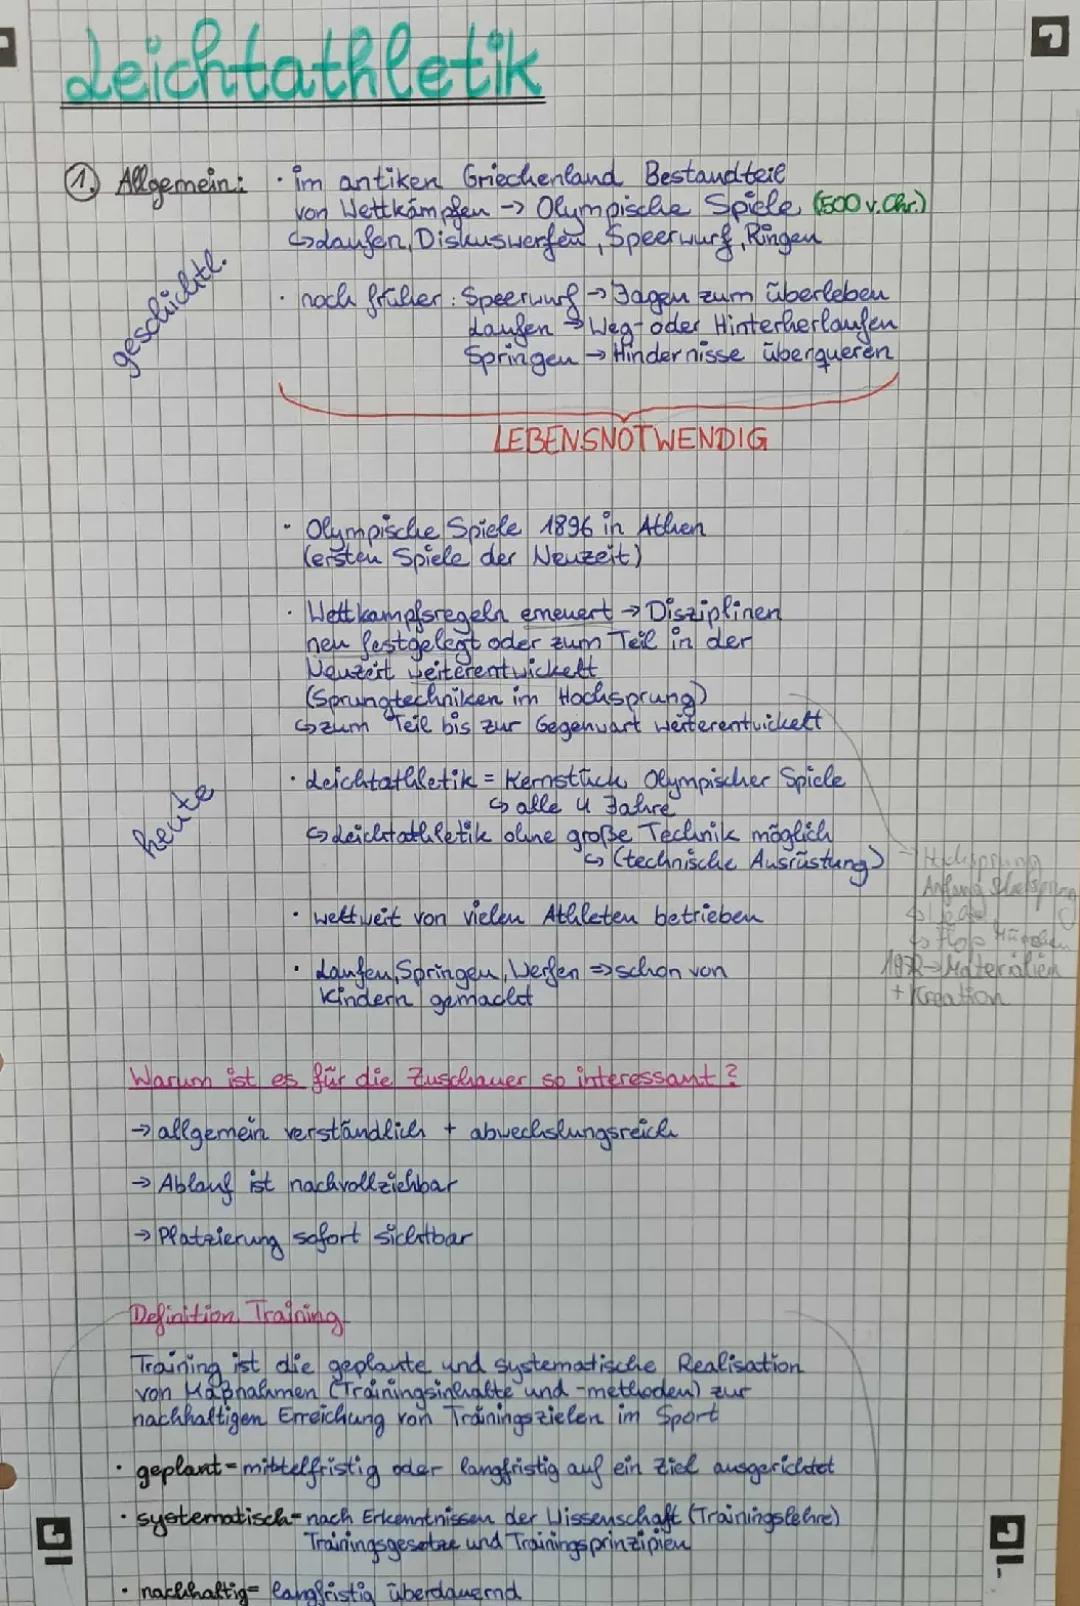 Leichtathletik
1. Allgemein:
geschichtl.
· im antiken Griechenland Bestandteil
von Wettkämpfen → Olympische Spiele (500 v. Chr.)
↳ Laufen, Diskuswerfen, Speerwurf, Ringen
· noch früher: Speerwurf → Jagen zum überleben
Laufen → Weg- oder Hinterherlaufen
Springen → Hindernisse überqueren
LEBENSNOTWENDIG
· Olympische Spiele 1896 in Athen
(ersten Spiele der Neuzeit)
· Wettkampfsregeln erneuert → Disziplinen
neu festgelegt oder zum Teil in der
Neuzeit weiterentwickelt
(Sprungtechniken im Hochsprung)
↳ zum Teil bis zur Gegenwart weiterentwickelt
heute
· Leichtathletik = Kernstück Olympischer Spiele
↳ alle 4 Jahre
↳ Leichtathletik ohne große Technik möglich
↳ (technische Ausrüstung)
→ Hochsprung
Anfang
↳ Flop München
→ Materialien
+ Kreation
· weltweit von vielen Athleten betrieben
· Laufen, Springen, Werfen => schon von
Kindern gemacht
Warum ist es für die Zuschauer so interessant?
→ allgemein verständlich + abwechslungsreich
→ Ablauf ist nachvollziehbar
→ Platzierung sofort sichtbar
Definition Training
Training ist die geplante und systematische Realisation
von Maßnahmen (Trainingsinhalte und -methoden) zur
nachhaltigen Erreichung von Trainingszielen im Sport
· geplant = mittelfristig oder langfristig auf ein Ziel ausgerichtet
· systematisch = nach Erkenntnissen der Wissenschaft (Trainingslehre)
Trainingsgesetze und Trainingsprinzipien
· nachhaltig = langfristig überdauernd